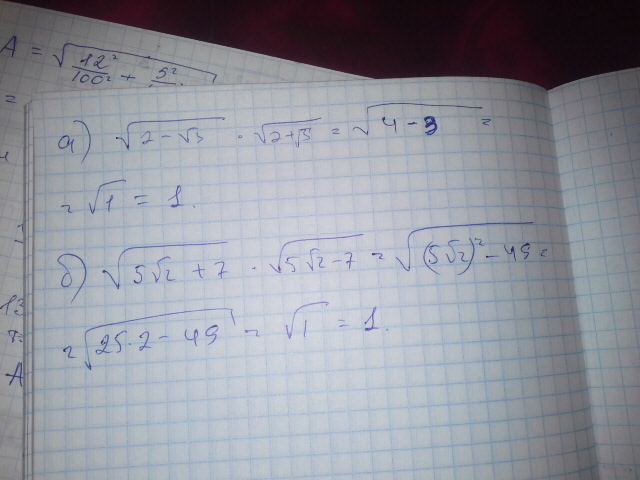 A = √(12²/100² + 5²
=
а) √(2 - √3) · √(2+√3) = √(4 - 3) =
= √1 = 1.
б) √(5√2 + 7) · √(5√2 - 7) = √((5√2)² - 49) =
= √(25·2 - 49) = √1 = 1.
13
A